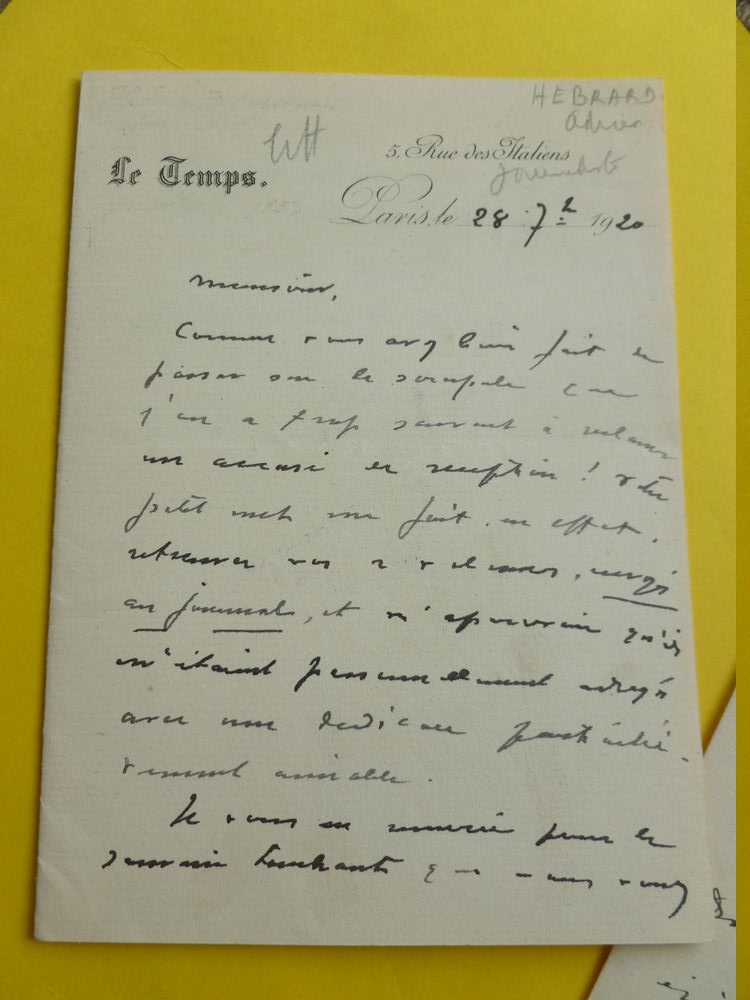 HEBRARD
Adrien
litt
5, Rue des Italiens
journaliste
Le Temps.
Paris, le 28 7bre 1920
Monsieur,
Comme vous avez bien fait de
passer sur le scrupule que
l'on a trop souvent à réclamer
un accusé de réception ! Votre
petit mot me fait, en effet,
retrouver vos 2 volumes, envoyés
au journal, et m'apercevoir qu'ils
m'étaient personnellement adressés
avec une dédicace particuliè-
rement aimable.
Je vous en remercie pour le
souvenir touchant que vous voulez